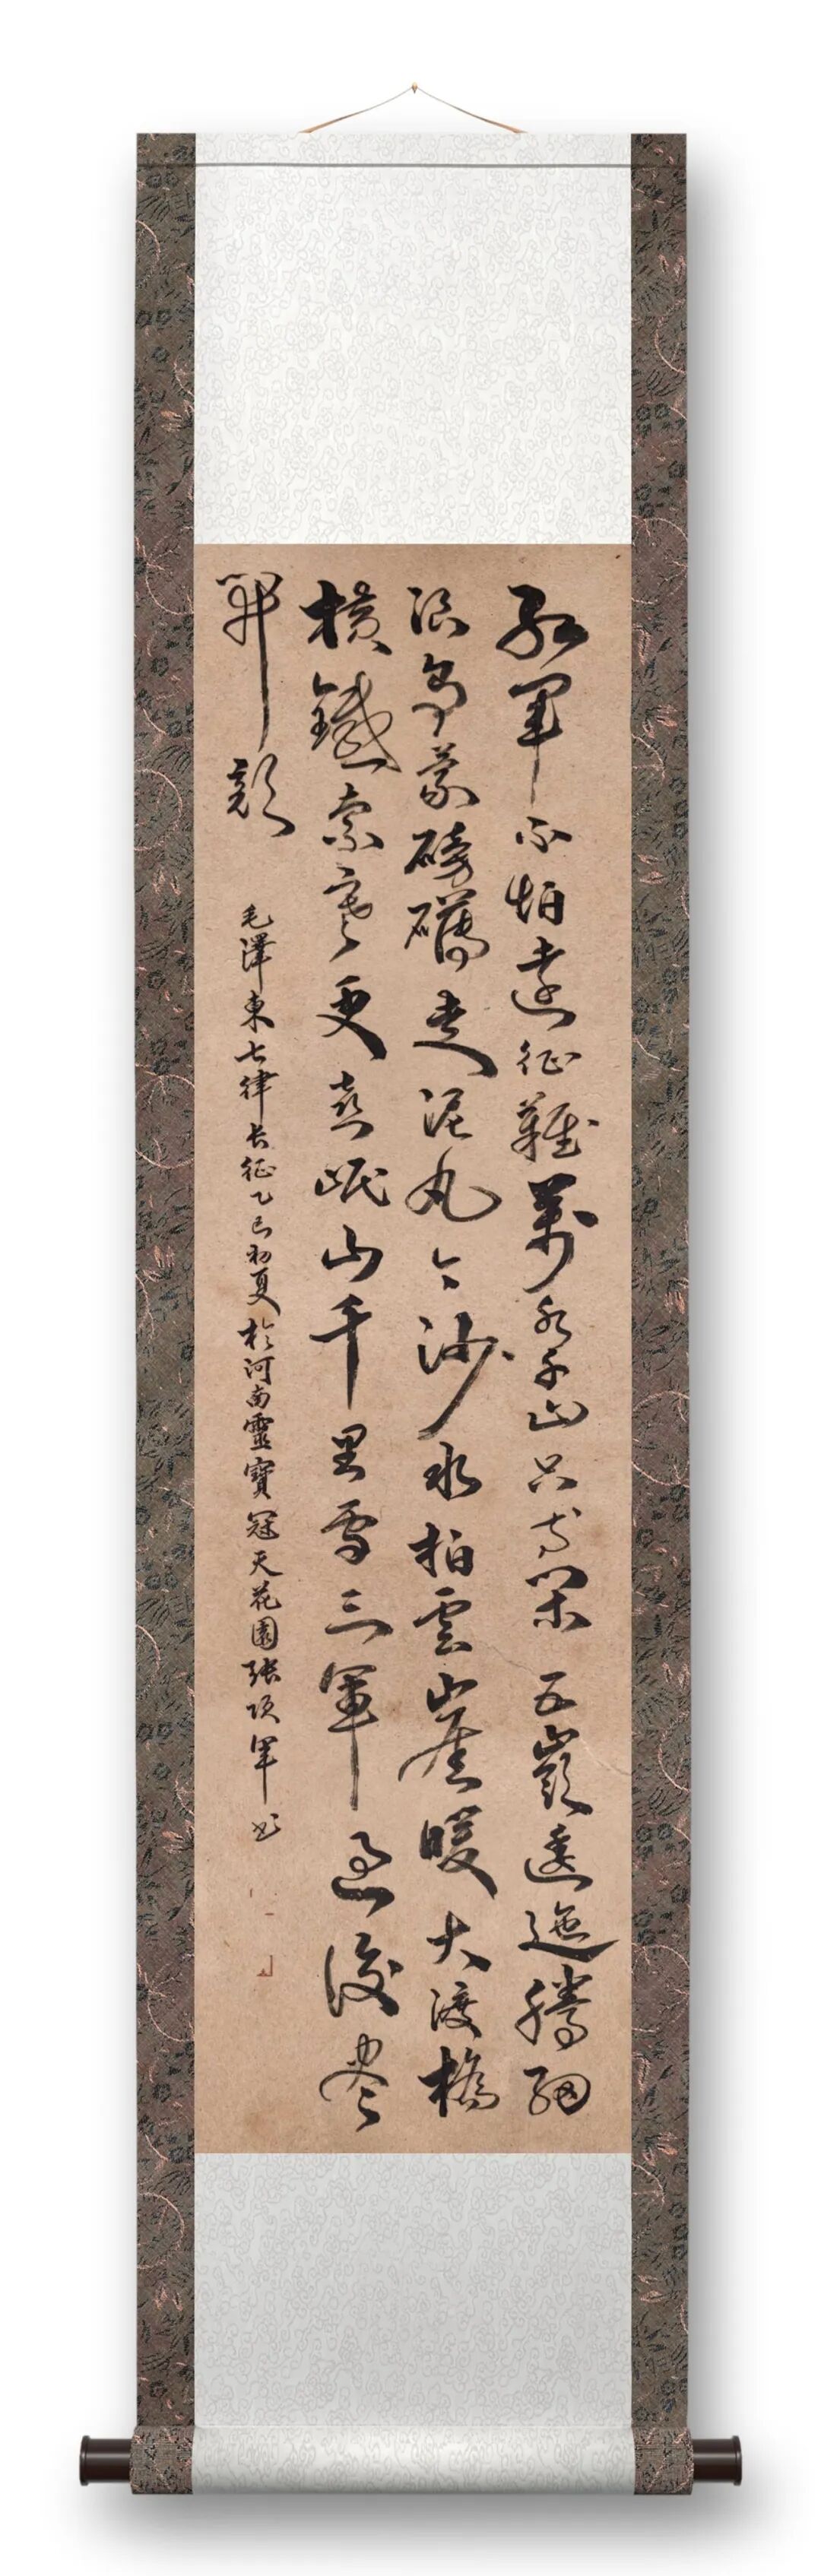 紅軍不怕遠征難萬水千山只等閑五嶺逶迤騰細
浪烏蒙磅礴走泥丸金沙水拍雲崖暖大渡橋
橫鐵索寒更喜岷山千里雪三軍過後盡
開顏
毛澤東七律長征乙巳初夏於河南靈寶冠天花園張項軍書